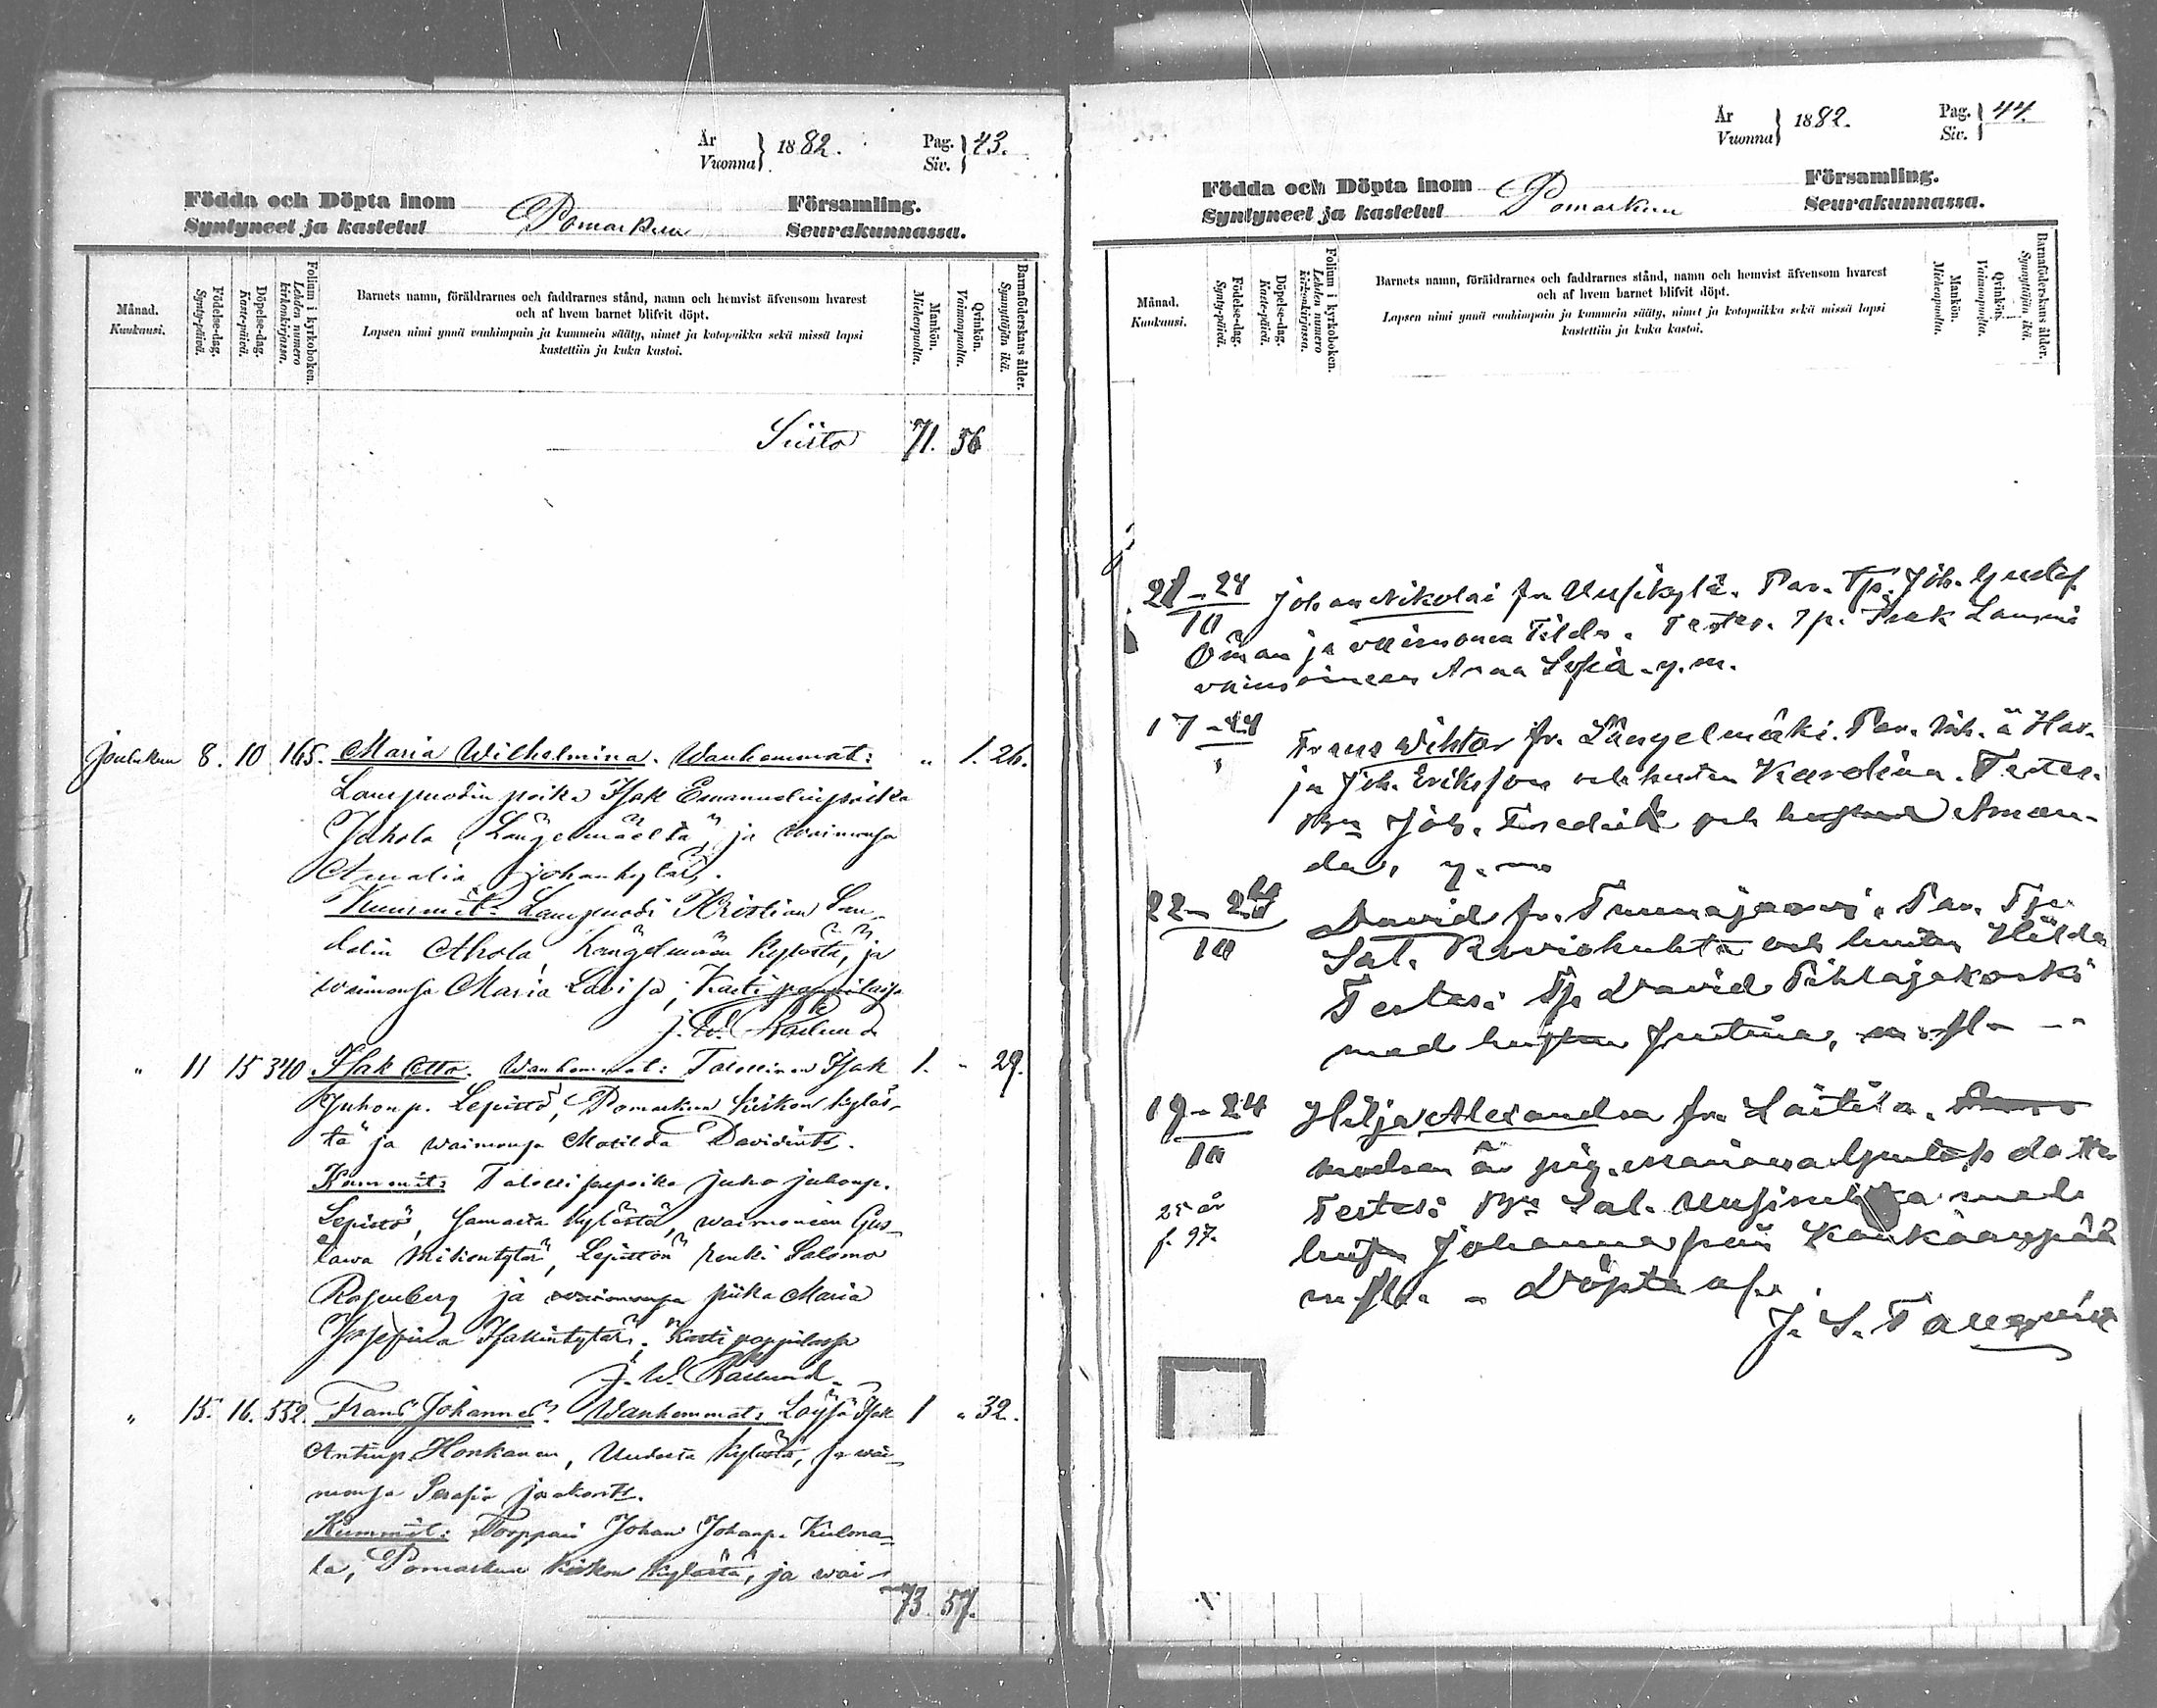 År
Vuonna } 1882. Pag.
Siv. } 43.
Födda och Döpta inom Församling.
Syntyneet ja kastetut Pomarkun Seurakunnassa.
Månad.
Kuukausi.
Födelse-dag.
Synty-päivä.
Döpelse-dag.
Kaste-päivä.
Folium i kyrkoboken.
Lehden numero
kirkonkirjassa.
Barnets namn, föräldrarnes och faddrarnes stånd, namn och hemvist äfvensom hvarest
och af hvem barnet blifvit döpt.
Lapsen nimi ynnä vanhimpain ja kummein sääty, nimet ja kotopaikka sekä missä lapsi
kastettiin ja kuka kastoi.
Mankön.
Miehenpuolta.
Qvinkön.
Vaimonpuolta.
Barnaföderskans ålder.
Synnyttäjän ikä.
Siirto 71. 56
Joulukuu 8. 10 165. Maria Wilhelmina. Wanhemmat: " 1. 26.
Lampuodin poika Isak Emanuelinpoika
Ahola, Längelmäeltä, ja waimonsa
Amalia Johank.
Kummit: Lampuodi Kristian San-
delin Ahola, Längelmäen kylästä, ja
waimonsa Maria Lovisa; Kasti pappilassa
J. W. Raelund
" 11 15 340 Isak Otto. Wanhemmat: Talollinen Isak 1. " 29.
Juhonp. Lepistö, Pomarkun kirkon kyläs-
tä ja waimonsa Matilda Davidint.
Kummit: Talollisenpoika Juho Juhonp.
Lepistö, samasta kylästä, waimoneen Gus-
tawa Mikontytär, Lepistön renki Salomo
Rosenberg ja waimonsa piika Maria
Josefina Isakintytär; Kasti pappilassa
J. W. Raelund
" 15. 16. 552. Frans Johannes. Wanhemmat: Löysä Isak 1 " 32.
Antinp. Honkanen, Uudesta kylästä, ja wai-
monsa Serafia Jaakont.
Kummit: Torppari Johan Johanp. Kulma-
la, Pomarkun kirkon kylästä, ja wai-
73. 57.
År
Vuonna } 1882. Pag.
Siv. } 44.
Födda och Döpta inom Pomarkun Församling.
Syntyneet ja kastetut Seurakunnassa.
Månad.
Kuukausi.
Födelse-dag.
Synty-päivä.
Döpelse-dag.
Kaste-päivä.
Folium i kyrkoboken.
Lehden numero
kirkonkirjassa.
Barnets namn, föräldrarnes och faddrarnes stånd, namn och hemvist äfvensom hvarest
och af hvem barnet blifvit döpt.
Lapsen nimi ynnä vanhimpain ja kummein sääty, nimet ja kotopaikka sekä missä lapsi
kastettiin ja kuka kastoi.
Mankön.
Miehenpuolta.
Qvinkön.
Vaimonpuolta.
Barnaföderskans ålder.
Synnyttäjän ikä.
21-24 Johan Nikolai fr. Uusikylä. Par. Tp. Joh. Gustaf
10
Öman ja vaimonsa Tilda. Testes. Tp. Isak Lammi
vaimoineen Anna Sofia y.m.
17-24 Frans Wihtor fr. Längelmäki. Par. Inh. å Har-
ja Joh. Eriksson och hustru Karolina. Testes.
Joh. Fredrik och hustrun Aman-
da, y.m.
22-24 David fr. Tuunajärvi. Par. Tp.
10 Sal. Raviokuhta och hustru Hilda
Testes: Tp. David Pihlajakoski
med hustru Justina, m. fl.
19-24 Hilja Alexandra fr. Laitila.
10 modren är pig. Mariana Gustafsdotter
25 år Testes: Sal. Uusimulta med
f. 97. hustru Johanna från Kankaanpää
m. fl. - Döpta af
J. S. Tallqvist